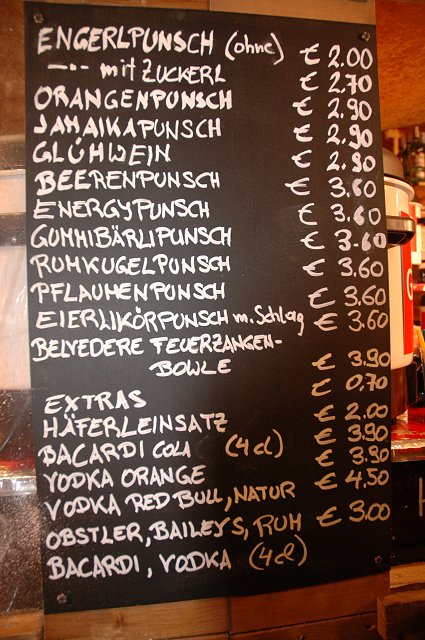 ENGERLPUNSCH (ohne) € 2.00
-·- mit ZUCKERL € 2.70
ORANGENPUNSCH € 2.90
JAMAIKAPUNSCH € 2.90
GLÜHWEIN € 2.90
BEERENPUNSCH € 3.60
ENERGYPUNSCH € 3.60
GUMMIBÄRLIPUNSCH € 3.60
RUMKUGELPUNSCH € 3.60
PFLAUMENPUNSCH € 3.60
EIERLIKÖRPUNSCH m. Schlag € 3.60
BELVEDERE FEUERZANGEN-
BOWLE € 3.90
EXTRAS € 0,70
HÄFERLEINSATZ € 2.00
BACARDI COLA (4cl) € 3.90
VODKA ORANGE € 3.90
VODKA RED BULL, NATUR € 4.50
OBSTLER, BAILEYS, RUM € 3.00
BACARDI, VODKA (4cl)